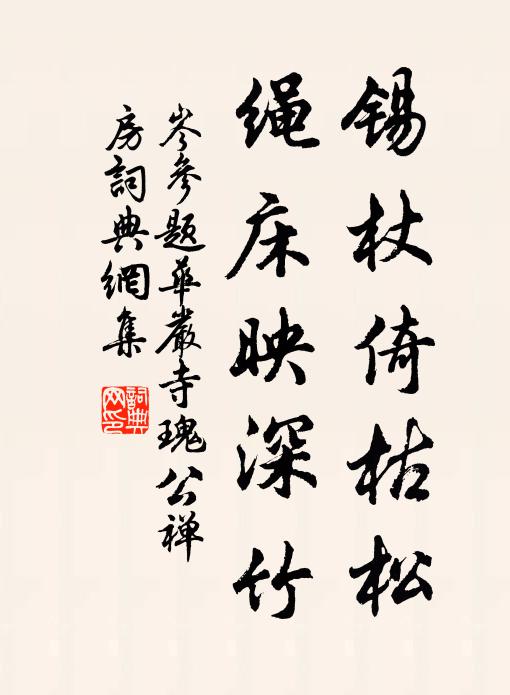 锡杖倚枯松
绳床映深竹
岑参题华严寺瑰公禅
房词典网集
词典网印